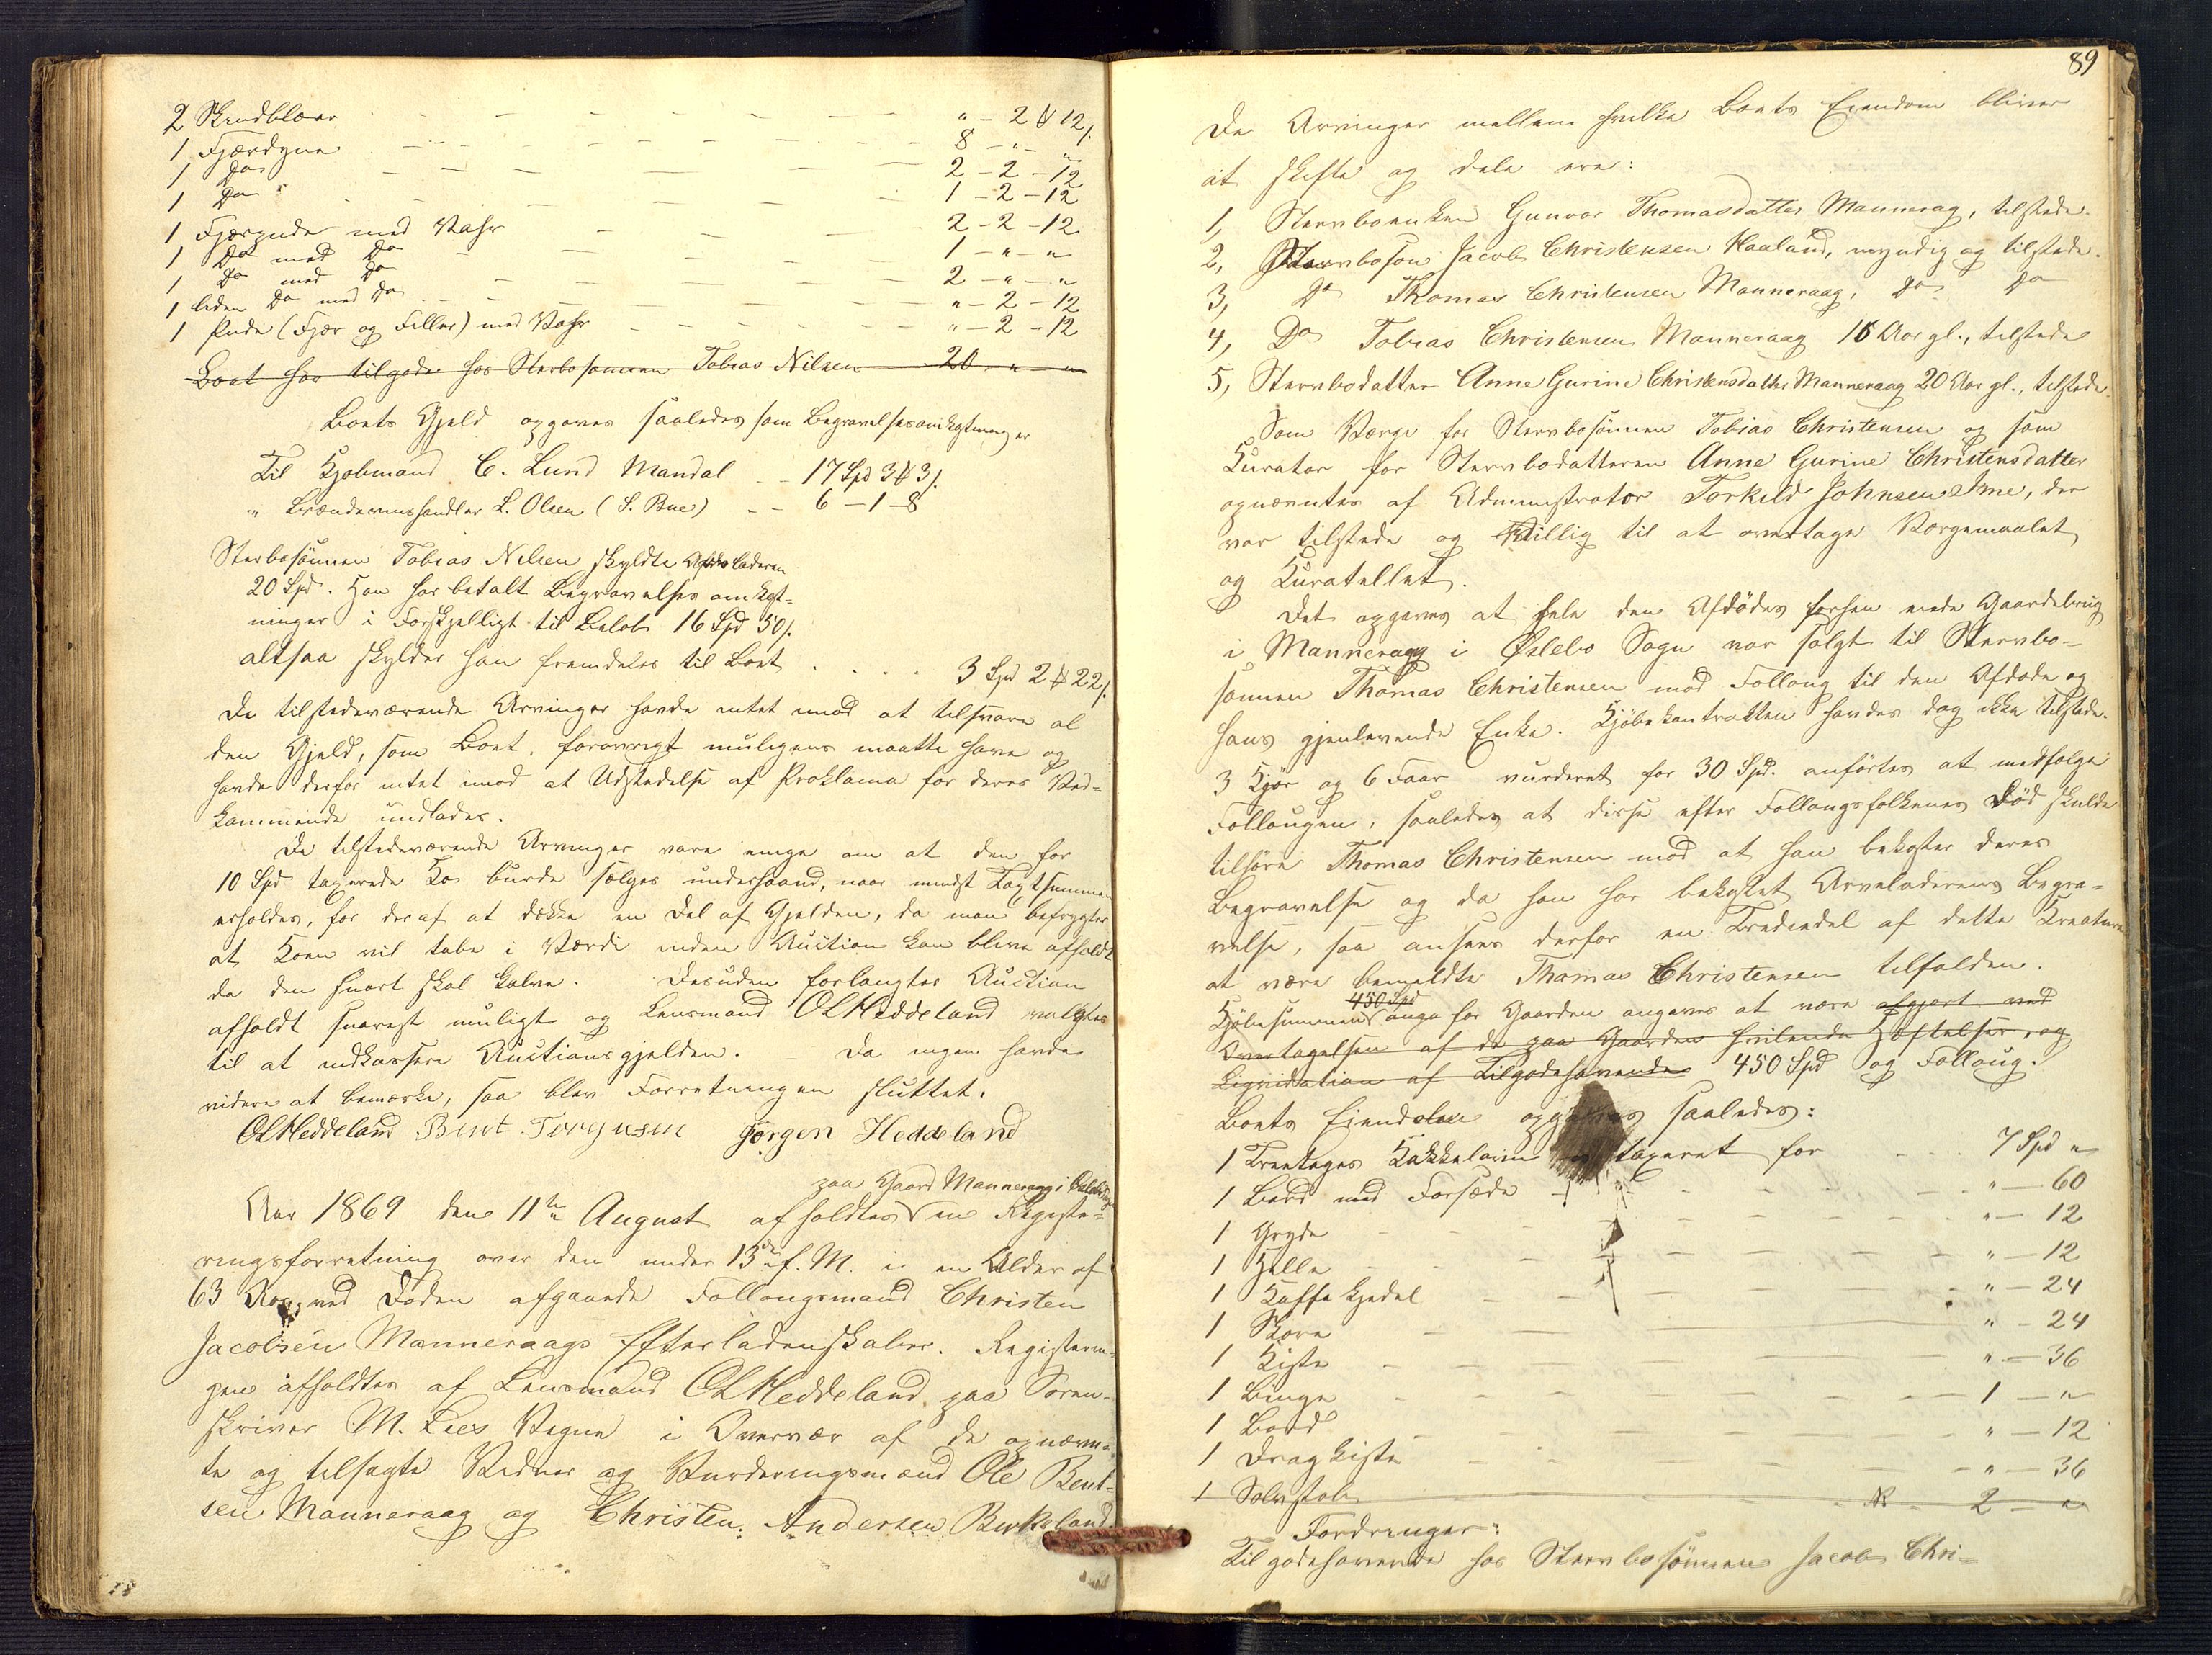 2 Skindblær - - - - - " - 2 ₰ 12 ſ.
1 Fjærdyne - - - - - 8 - " - "
1 Do - - - - - 2 - 2 - 12
1 Do - - - - - 1 - 2 - 12
1 Fjærpude med Vahr - - - 2 - 2 - 12
1 Do med Do - - - 1 - " - "
1 Do med Do - - - 2 - " - "
1 liden Do med Do - - - " - 2 - 12
1 Pude (Fjær og Filler) med Vahr - - - " - 2 - 12
Boet har tilgode hos Sterbosønnen Tobias Nilsen 20 " "
Boets Gjeld opgaves saaledes som Begravelsesomkostninger
Til Kjøbmand C. Lund Mandal - - 17 Spd 3 ₰ 3 ſ.
" Brændevinshandler L. Olsen (S. Bue) - - 6 - 1 - 8
Sterbosønnen Tobias Nilsen skyldte Arveladeren
20 Spd. Han har betalt Begravelsesomkost-
ninger i Forskjelligt til Beløb 16 Spd 50 ſ.
altsaa skylder han fremdeles til Boet . . . . 3 Spd 2 ₰ 22 ſ.
De tilstedeværende Arvinger havde intet imod at tilsvare al
den Gjeld, som Boet forøvrigt muligens maatte have og
havde derfor intet imod at Udstedelse af Proklama for deres Ved-
kommende undlades.
De tilstedeværende Arvinger vare enige om at den for
10 Spd taxerede Ko burde sælges underhaand, naar mindst Taxtsummen
erholdes, for deraf at dække en Del af Gjelden, da man befrygter
at Koen vil tabe i Værdi inden Auction kan blive afholdt
da den snart skal kalve. Desuden forlangtes Auction
afholdt snarest muligt og Lensmand OLHeddeland valgtes
til at indkassere Auctionsgjelden. - Da ingen havde
videre at bemærke, saa blev Forretningen sluttet.
OLHeddeland Bent Torgusen Jørgen Heddeland
paa Gaard Manneraag i Øslebø Sogn
Aar 1869 den 11te August afholdtes en Registe-
ringsforretning over den under 13de f. M. i en Alder af
63 Aar ved Døden afgaaede Follougsmand Christen
Jacobsen Manneraags Efterladenskaber. Registerin-
gen afholdtes af Lensmand OLHeddeland paa Soren-
skriver M. Lies Vegne i Overvær af de opnævn-
te og tilsagte Vidner og Vurderingsmænd Ole Bent-
sen Manneraag og Christen Andersen Birkeland.
89
De Arvinger mellem hvilke Boets Eiendom bliver
at skifte og dele ere:
1, Stervboenken Gunvor Thomasdatter Mannerag, tilstede.
2, Stervbosøn Jacob Christensen Haaland, myndig og tilstede.
3, Do Thomas Christensen Manneraag, Do Do
4, Do Tobias Christensen Manneraag 16 Aar gl., tilstede
5, Stervbodatter Anne Gurine Christensdatter Manneraag 20 Aar gl., tilstede.
Som Værge for Stervbosønnen Tobias Christensen og som
Kurator for Stervbodatteren Anne Gurine Christensdatter
opnævntes af Administrator Torkild Johnsen Ime, der
var tilstede og villig til at overtage Værgemaalet
og Kuratellet.
Det opgaves at hele den Afdødes forhen eiede Gaardebrug
i Manneragg i Øslebø Sogn var solgt til Stervbo-
sønnen Thomas Christensen mod Folloug til den Afdøde og
hans gjenlevende Enke. Kjøbekontrakten havdes dog ikke tilstede.
3 Kjør og 6 Faar vurderet for 30 Spd. anførtes at medfølge
Follougen, saaledes at disse efter Follougsfolkenes Død skulde
tilhøre Thomas Christensen mod at han bekoster deres
Begravelse og da han har bekostet Arveladerens Begra-
velse, saa ansees derfor en Trediedel af dette Kreature
at være bemeldte Thomas Christensen tilfalden.
450 Spd
Kjøbesummen for Gaarden angaves at være afgjort ved
Overtagelsen af de paa Gaarden hvilende Hæftelser, og
Liqvidation af Tilgodehavende 450 Spd og Folloug.
Boets Eiendele opgaves saaledes:
1 Treetages Kakkelovn taxeret for - - - 7 Spd "
1 Bord med Forsæde - - - " - 60
1 Gryde - - - " - 12
1 Helle - - - " - 12
1 Kaffekjedel - - - " - 24
1 Skove - - - " - 24
1 Kiste - - - " - 36
1 Binge - - - 1 - "
1 Bord - - - " - 12
1 Dragkiste - - - " - 36
1 Sølvstob 2 - "
Fordringer:
Tilgodehavende hos Stervbosønnen Jacob Chri-